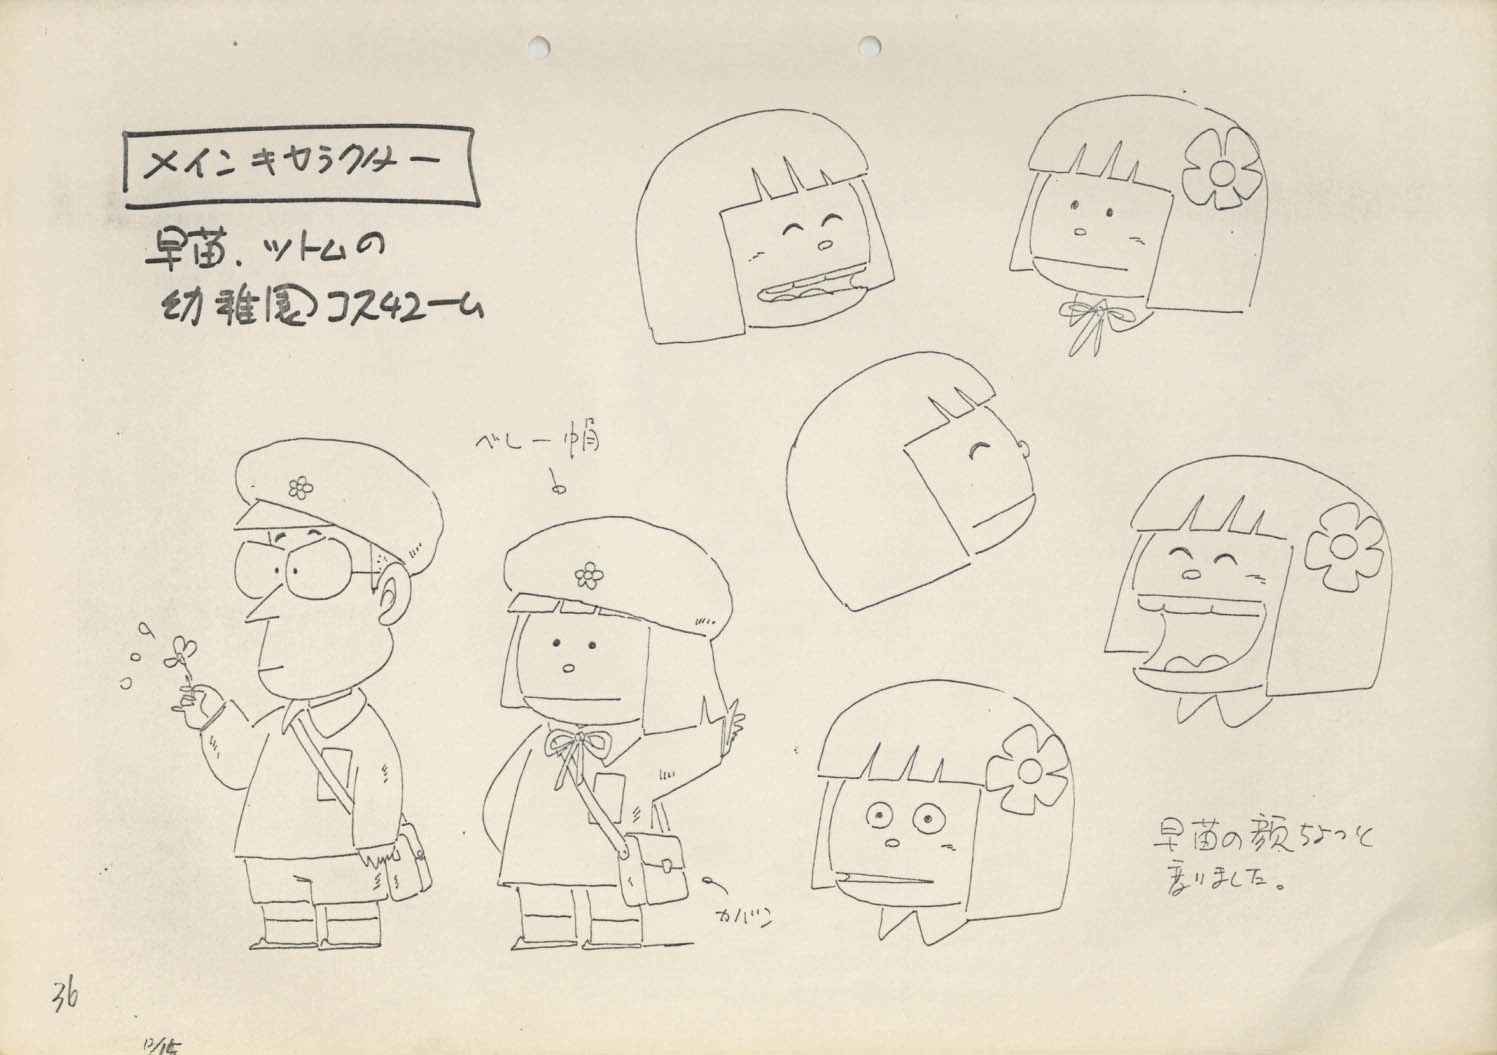 メインキャラクター
早苗、ツトムの
幼稚園コスチューム
ベレー帽
カバン
早苗の顔ちょっと
変りました。
36
12/15